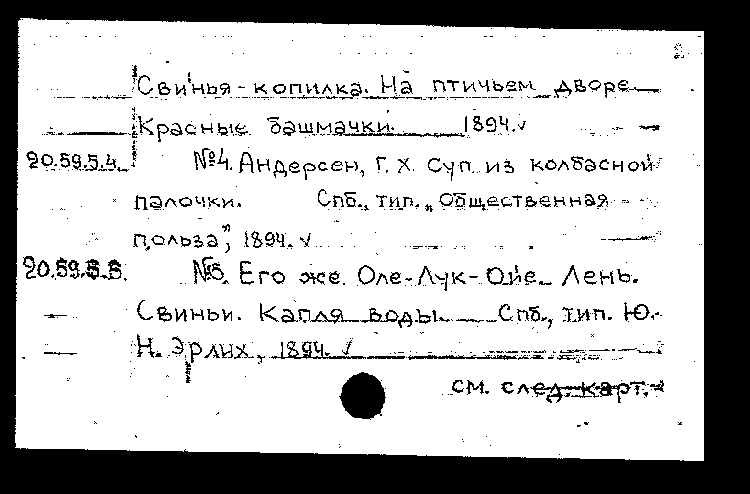 2
Свинья-копилка. На птичьем дворе
Красные башмачки. 1894.
20.59.5.4. №4. Андерсен, Г. Х. Суп из колбасной
палочки. Спб., тип. „Общественная
польза", 1894.
20.59.5.5. №5. Его же. Оле-Лук-Ойе. Лень.
Свиньи. Капля воды. Спб., тип. Ю.
Н. Эрлих, 1894.
см. след. карт.